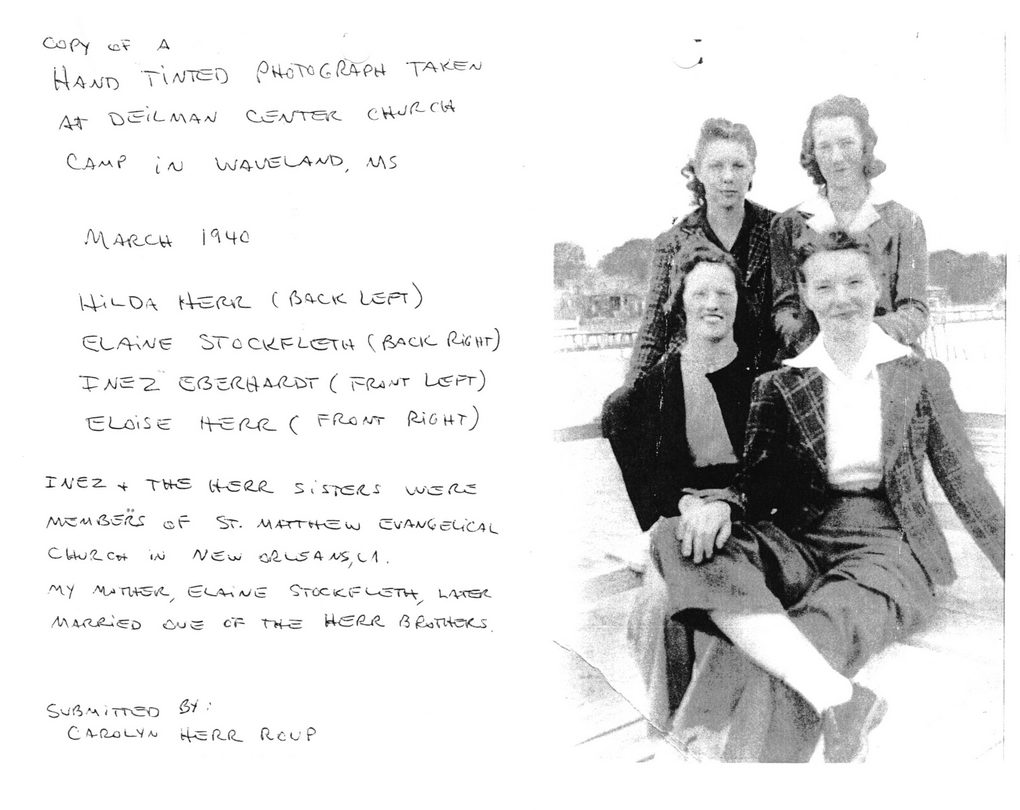 COPY OF A
HAND TINTED PHOTOGRAPH TAKEN
AT DEILMAN CENTER CHURCH
CAMP IN WAVELAND, MS
MARCH 1940
HILDA HERR (BACK LEFT)
ELAINE STOCKFLETH (BACK RIGHT)
INEZ EBERHARDT (FRONT LEFT)
ELOISE HERR (FRONT RIGHT)
INEZ + THE HERR SISTERS WERE
MEMBERS OF ST. MATTHEW EVANGELICAL
CHURCH IN NEW ORLEANS, LA.
MY MOTHER, ELAINE STOCKFLETH, LATER
MARRIED ONE OF THE HERR BROTHERS.
SUBMITTED BY:
CAROLYN HERR ROUP